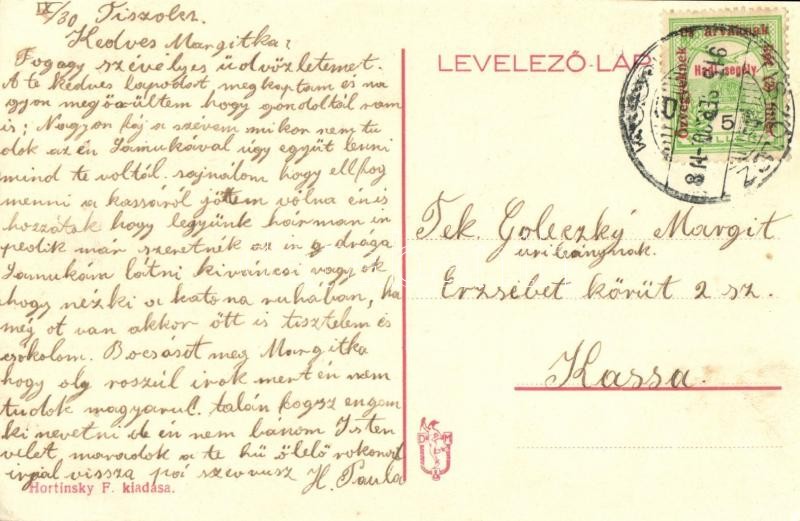 IX/30 Tiszolcz.
Kedves Margitka!
Fogagy szévelyes üdvözletemet.
A te kedves lapodort, megkaptam és na
gyon megörültem hogy gondoltál ram
is; Nagyon fáj a szévem mikor nem tu
dok az én Samukával úgy együt lenni
mind te voltál. sajnálom hogy ellfog
menni a kassáról jöttem volna én is
hozzátok hogy legyünk hárman
pedik már szeretnék az drága
Samukám látni kiváncsi vagyok
hogy nézki a katona ruhában, ha
még ot van akkor ött is tisztelem és
csókolom. Bocsásit meg Margitka
hogy oly roszúl irok mert én nem
tudok magyarul. talán fogsz engem
ki nevetni de én nem bánom Isten
velet, maradok a te hü ölelő rokonod
irjál vissza pá szervusz H. Paula
Hortinsky F. kiadása.
LEVELEZŐ-LAP
Özvegyeknek és árváknak két (2) fillér
Hadi segély
5
Tek. Goleczký Margit
urileánynak.
Erzsébet körút 2 sz.
Kassa.
D M